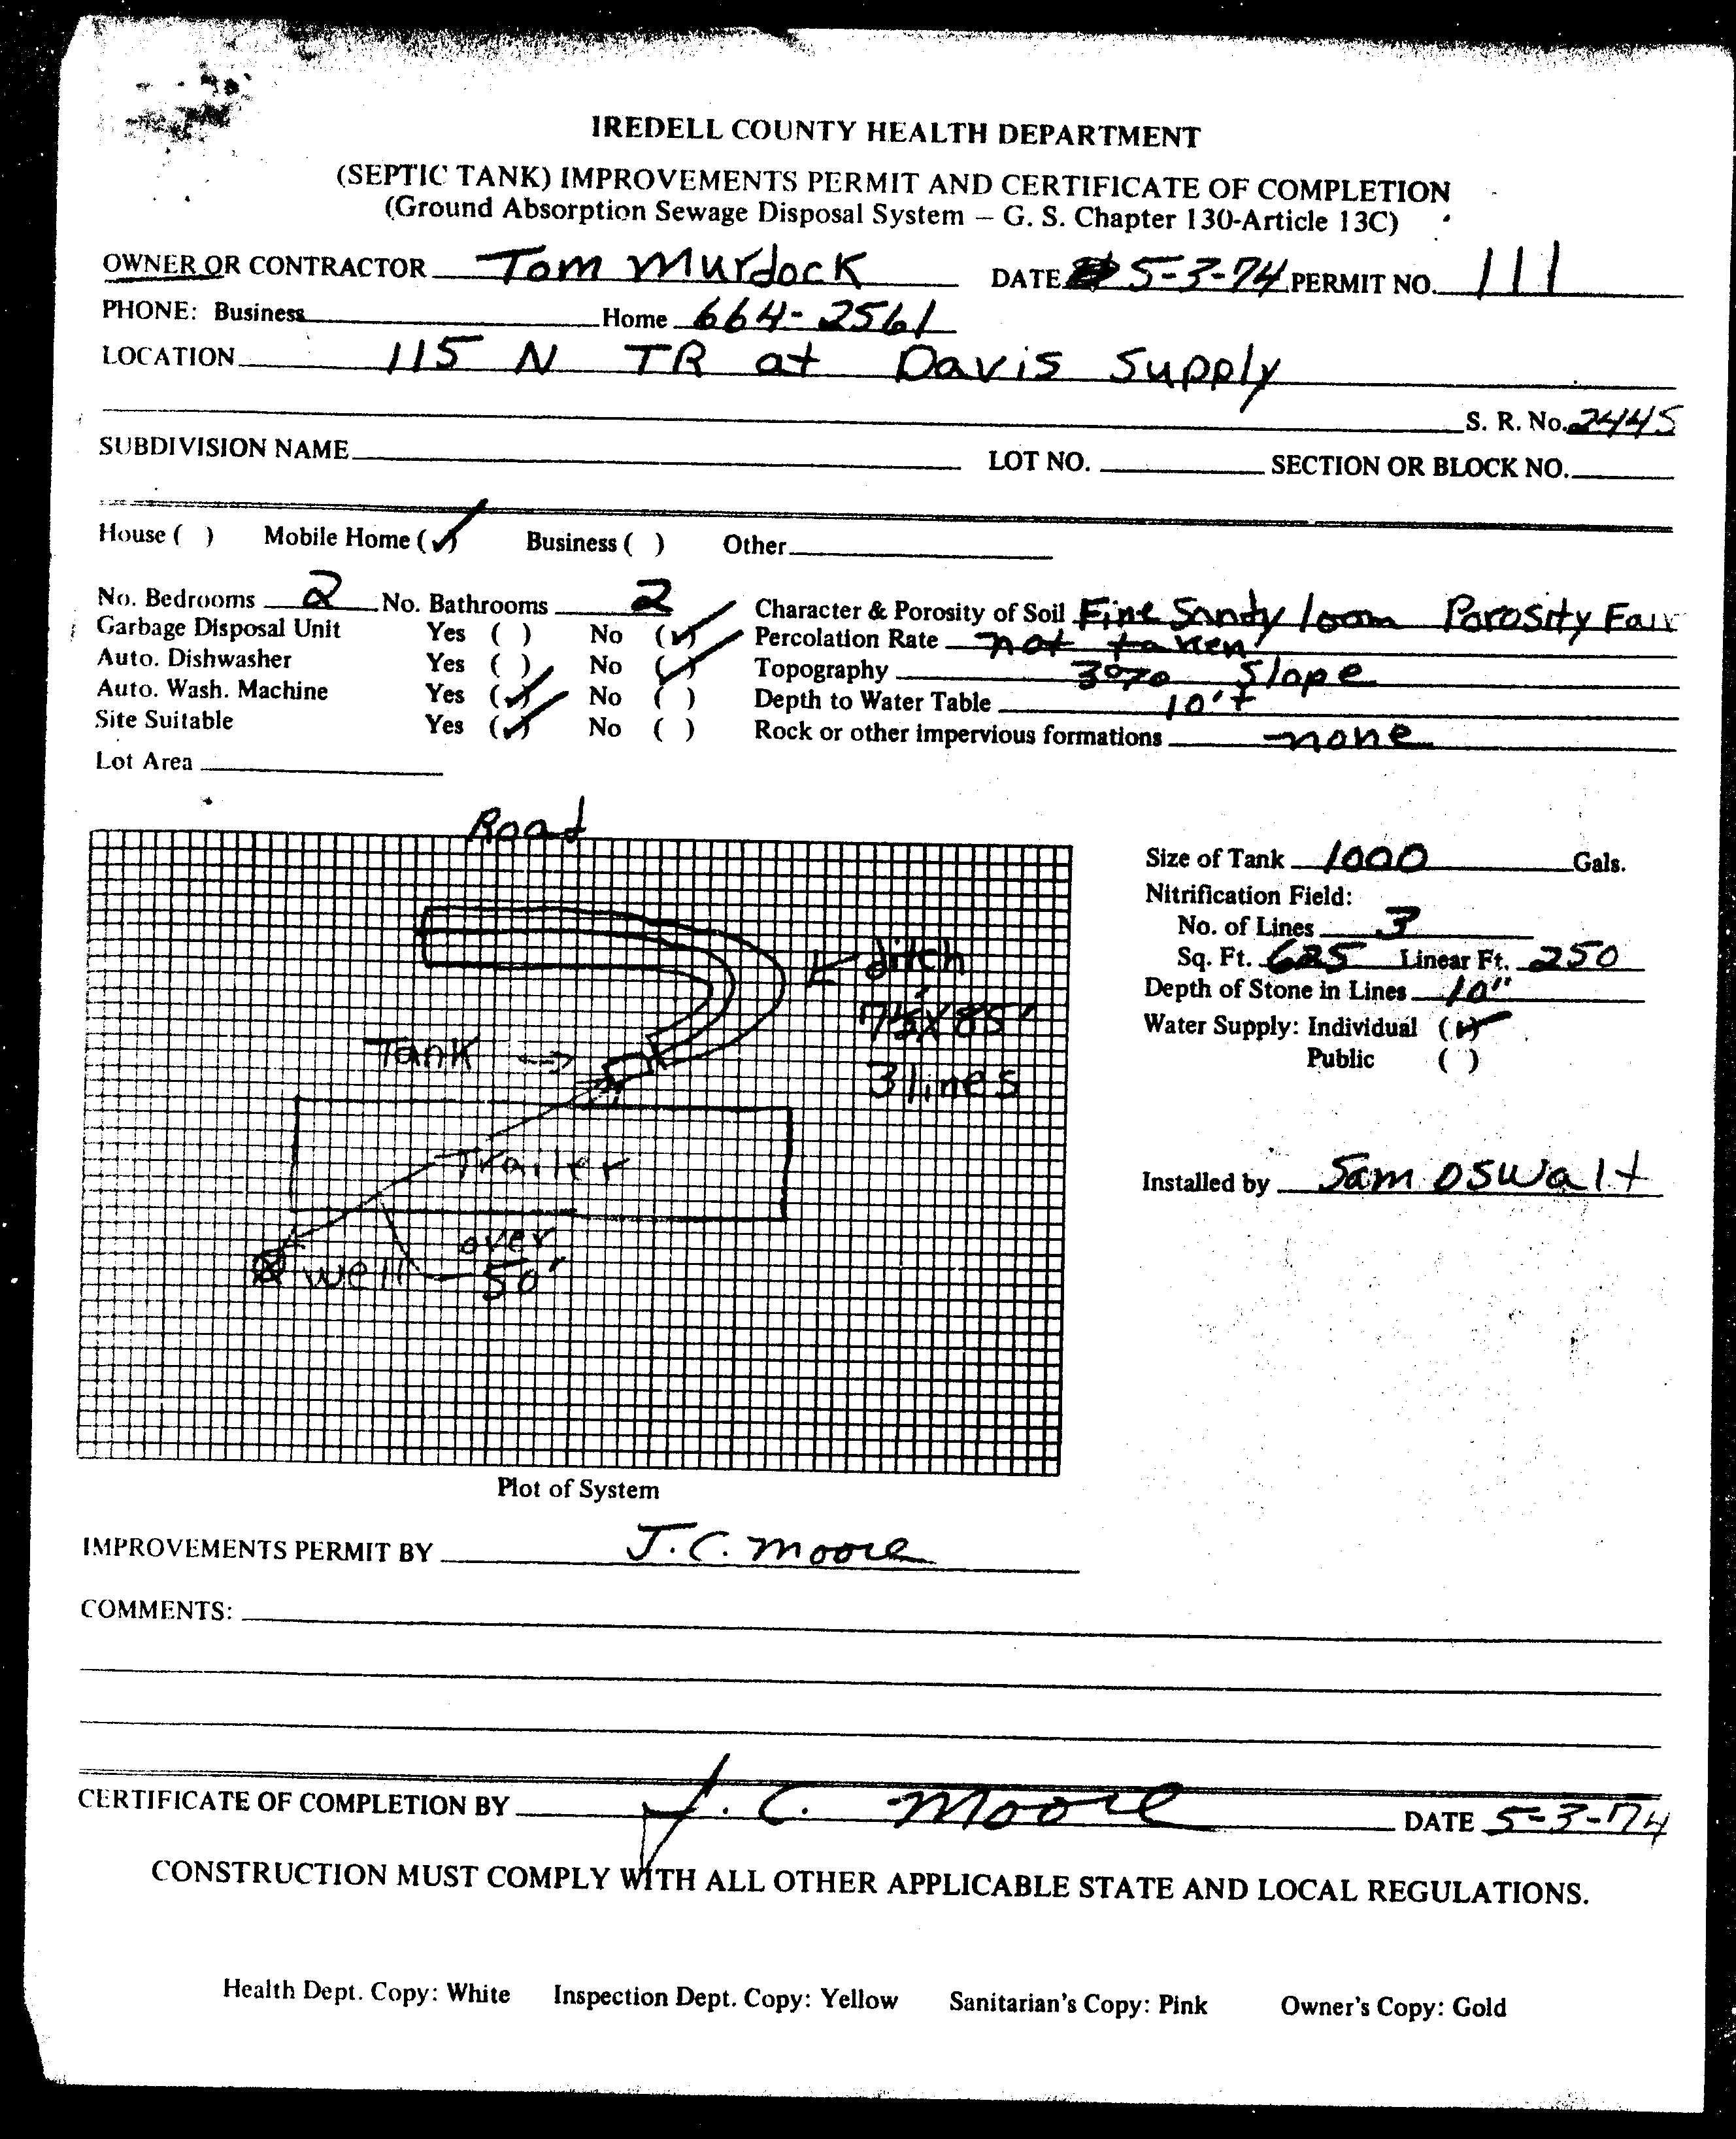 IREDELL COUNTY HEALTH DEPARTMENT
(SEPTIC TANK) IMPROVEMENTS PERMIT AND CERTIFICATE OF COMPLETION
(Ground Absorption Sewage Disposal System – G. S. Chapter 130-Article 13C)
OWNER OR CONTRACTOR Tom Murdock DATE 5-3-74 PERMIT NO. 111
PHONE: Business Home 664-2561
LOCATION 115 N TR at Davis Supply
S. R. No. 2445
SUBDIVISION NAME LOT NO. SECTION OR BLOCK NO.
House ( ) Mobile Home (✓) Business ( ) Other
No. Bedrooms 2 No. Bathrooms 2 Character & Porosity of Soil Fine Sandy loom Porosity Fair
Garbage Disposal Unit Yes ( ) No (✓) Percolation Rate not taken
Auto. Dishwasher Yes ( ) No (✓) Topography 3% Slope
Auto. Wash. Machine Yes (✓) No ( ) Depth to Water Table 10'+
Site Suitable Yes (✓) No ( ) Rock or other impervious formations none
Lot Area
Road
Size of Tank 1000 Gals.
Nitrification Field:
No. of Lines 3
Sq. Ft. 625 Linear Ft. 250
Depth of Stone in Lines 10"
Water Supply: Individual (✓)
Public ( )
ditch
85'
Tank
3 lines
Trailer
over
well 50'
Installed by Sam Oswalt
Plot of System
IMPROVEMENTS PERMIT BY J.C. Moore
COMMENTS:
CERTIFICATE OF COMPLETION BY J. C. Moore DATE 5-3-74
CONSTRUCTION MUST COMPLY WITH ALL OTHER APPLICABLE STATE AND LOCAL REGULATIONS.
Health Dept. Copy: White Inspection Dept. Copy: Yellow Sanitarian's Copy: Pink Owner's Copy: Gold